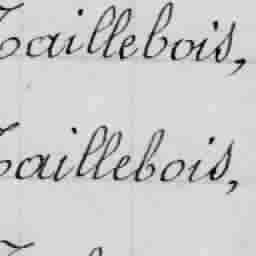 Taillebois,
Taillebois,